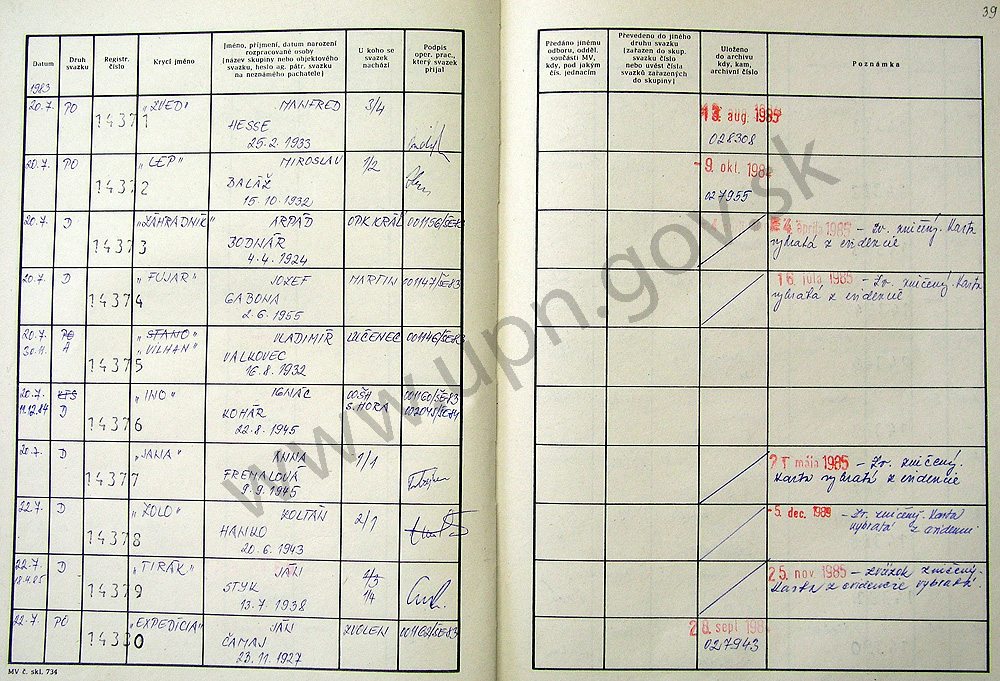 39
Datum
Druh svazku
Registr. číslo
Krycí jméno
Jméno, příjmení, datum narození rozpracované osoby (název skupiny nebo objektového svazku, heslo ag. pátr. svazku na neznámého pachatele)
U koho se svazek nachází
Podpis oper. prac., který svazek přijal
Předáno jinému odboru, odděl. součásti MV, kdy, pod jakým čís. jednacím
Převedeno do jiného druhu svazku (zařazen do skup. svazku číslo nebo uvést čísla svazků zařazených do skupiny)
Uloženo do archivu kdy, kam, archivní číslo
Poznámka
1983
20.7. PO 14371 "ZVEDI" MANFRED 3/4
HESSE
25.2. 1933
13. aug. 1985
028308
20.7. PO 14372 "LEP" MIROSLAV 1/2
BALÁŽ
15.10.1932
-9. okt. 1984
027955
20.7. D 14373 "ZÁHRADNÍK" ARPÁD OPK KRÁL 001156/SE-83
BODNÁR
4.4.1924
apríla 1985 - Zv. zničený. Karta
vybratá z evidencie
20.7. D 14374 "FUJAR" JOZEF MARTIN 001147/SE-83
GABONA
2.6.1955
16 júla 1985 - Zv. zničený. Karta
vybratá z evidencie
20.7. PO 14375 "STANO" VLADIMÍR LUČENEC 001146/SE-83
30.11. A "VILHAN" VALKOVEC
16.8.1932
20.7. KTS 14376 "INO" IGNÁC OOŠH 001160/SE-83
11.12.84 D KOHÁR S.HORA 002048/SE-84
22.8.1945
20.7. D 14377 "JANA" ANNA 1/1
FREMALOVÁ
9.9.1945
21 mája 1985 - Zv. zničený.
Karta vybratá z evidencie
22.7. D 14378 "ZOLO" ZOLTÁN 2/1
HANKO
20.6.1943
-5. dec. 1989 - Zv. zničený. Karta
vybratá z evidencie
22.7. D 14379 "TIRÁK" JÁN 2/3
18.4.85 STYK 1/4
13.7.1938
25. nov. 1985 - zväzok zničený.
Karta z evidencie vybratá.
22.7. PO 14380 "EXPEDÍCIA" JÁN ZVOLEN 001162/SE-83
ČAMAJ
23.11.1927
28. sept. 1984
027943
MV č. skl. 734
www.upn.gov.sk